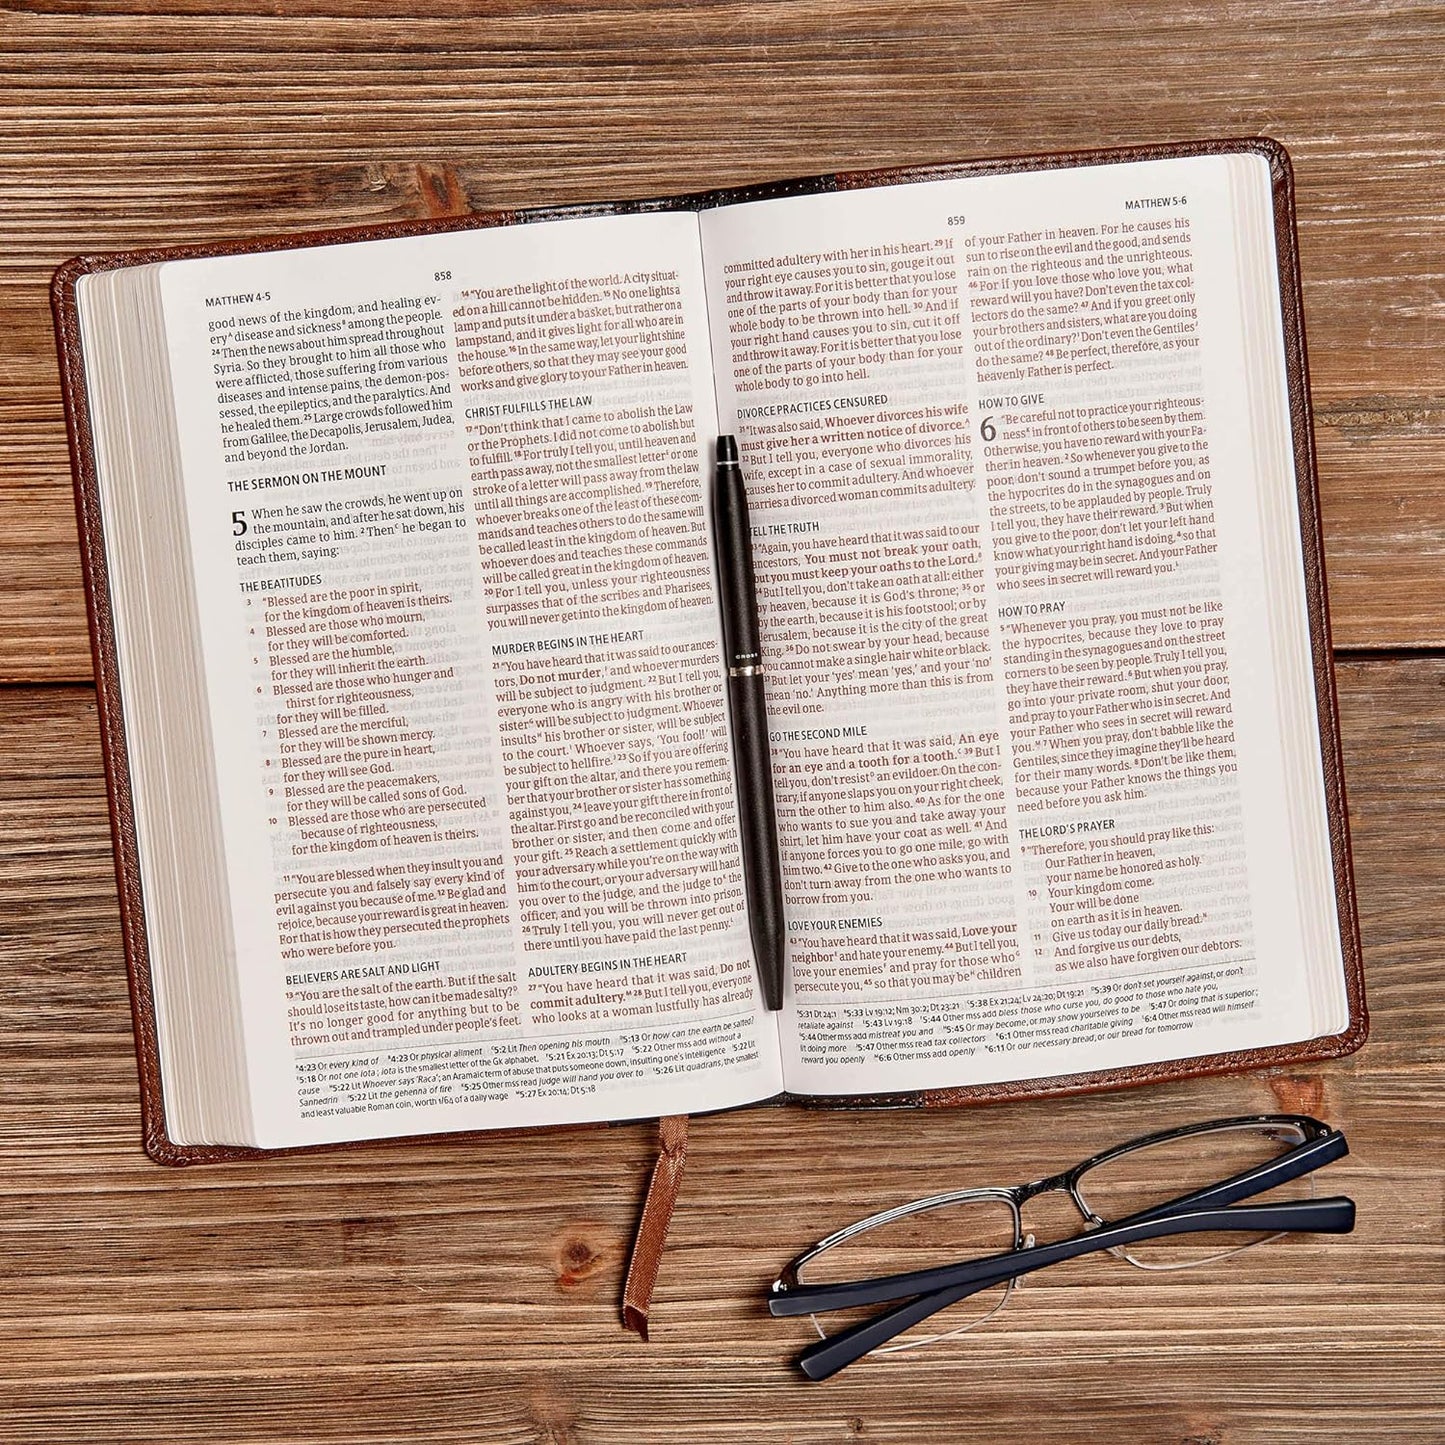 MATTHEW 4-5
858
good news of the kingdom, and healing ev-
eryᴬ disease and sicknessᴮ among the people.
24 Then the news about him spread throughout
Syria. So they brought to him all those who
were afflicted, those suffering from various
diseases and intense pains, the demon-pos-
sessed, the epileptics, and the paralytics. And
he healed them. 25 Large crowds followed him
from Galilee, the Decapolis, Jerusalem, Judea,
and beyond the Jordan.
THE SERMON ON THE MOUNT
5 When he saw the crowds, he went up on
the mountain, and after he sat down, his
disciples came to him. 2 Thenᶜ he began to
teach them, saying:
THE BEATITUDES
3 "Blessed are the poor in spirit,
for the kingdom of heaven is theirs.
4 Blessed are those who mourn,
for they will be comforted.
5 Blessed are the humble,
for they will inherit the earth.
6 Blessed are those who hunger and
thirst for righteousness,
for they will be filled.
7 Blessed are the merciful,
for they will be shown mercy.
8 Blessed are the pure in heart,
for they will see God.
9 Blessed are the peacemakers,
for they will be called sons of God.
10 Blessed are those who are persecuted
because of righteousness,
for the kingdom of heaven is theirs.
11 "You are blessed when they insult you and
persecute you and falsely say every kind of
evil against you because of me. 12 Be glad and
rejoice, because your reward is great in heaven.
For that is how they persecuted the prophets
who were before you.
BELIEVERS ARE SALT AND LIGHT
13 "You are the salt of the earth. But if the salt
should lose its taste, how can it be made salty?ᴰ
It's no longer good for anything but to be
thrown out and trampled under people's feet.
14 "You are the light of the world. A city situat-
ed on a hill cannot be hidden. 15 No one lights a
lamp and puts it under a basket, but rather on a
lampstand, and it gives light for all who are in
the house. 16 In the same way, let your light shine
before others, so that they may see your good
works and give glory to your Father in heaven.
CHRIST FULFILLS THE LAW
17 "Don't think that I came to abolish the Law
or the Prophets. I did not come to abolish but
to fulfill. 18 For truly I tell you, until heaven and
earth pass away, not the smallest letterᴱ or one
stroke of a letter will pass away from the law
until all things are accomplished. 19 Therefore,
whoever breaks one of the least of these com-
mands and teaches others to do the same will
be called least in the kingdom of heaven. But
whoever does and teaches these commands
will be called great in the kingdom of heaven.
20 For I tell you, unless your righteousness
surpasses that of the scribes and Pharisees,
you will never get into the kingdom of heaven.
MURDER BEGINS IN THE HEART
21 "You have heard that it was said to our ances-
tors, Do not murder,ᶠ and whoever murders
will be subject to judgment. 22 But I tell you,
everyone who is angry with his brother or
sisterᴳ will be subject to judgment. Whoever
insultsᴴ his brother or sister, will be subject
to the court.ᴵ Whoever says, 'You fool!' will
be subject to hellfire.ᴶ 23 So if you are offering
your gift on the altar, and there you remem-
ber that your brother or sister has something
against you, 24 leave your gift there in front of
the altar. First go and be reconciled with your
brother or sister, and then come and offer
your gift. 25 Reach a settlement quickly with
your adversary while you're on the way with
him to the court, or your adversary will hand
you over to the judge, and the judge toᴷ the
officer, and you will be thrown into prison.
26 Truly I tell you, you will never get out of
there until you have paid the last penny.ᴸ
ADULTERY BEGINS IN THE HEART
27 "You have heard that it was said, Do not
commit adultery.ᴹ 28 But I tell you, everyone
who looks at a woman lustfully has already
ᴬ4:23 Or every kind of ᴮ4:23 Or physical ailment ᶜ5:2 Lit Then opening his mouth ᴰ5:13 Or how can the earth be salted?
ᴱ5:18 Or not one iota; iota is the smallest letter of the Gk alphabet. ᶠ5:21 Ex 20:13; Dt 5:17 ᴳ5:22 Other mss add without a
cause ᴴ5:22 Lit Whoever says 'Raca'; an Aramaic term of abuse that puts someone down, insulting one's intelligence ᴵ5:22 Lit
Sanhedrin ᴶ5:22 Lit the gehenna of fire ᴷ5:25 Other mss read judge will hand you over to ᴸ5:26 Lit quadrans, the smallest
and least valuable Roman coin, worth 1/64 of a daily wage ᴹ5:27 Ex 20:14; Dt 5:18
859
MATTHEW 5-6
committed adultery with her in his heart. 29 If
your right eye causes you to sin, gouge it out
and throw it away. For it is better that you lose
one of the parts of your body than for your
whole body to be thrown into hell. 30 And if
your right hand causes you to sin, cut it off
and throw it away. For it is better that you lose
one of the parts of your body than for your
whole body to go into hell.
DIVORCE PRACTICES CENSURED
31 "It was also said, Whoever divorces his wife
must give her a written notice of divorce.ᴬ
32 But I tell you, everyone who divorces his
wife, except in a case of sexual immorality,
causes her to commit adultery. And whoever
marries a divorced woman commits adultery.
TELL THE TRUTH
33 "Again, you have heard that it was said to our
ancestors, You must not break your oath,
but you must keep your oaths to the Lord.ᴮ
34 But I tell you, don't take an oath at all: either
by heaven, because it is God's throne; 35 or
by the earth, because it is his footstool; or by
Jerusalem, because it is the city of the great
King. 36 Do not swear by your head, because
you cannot make a single hair white or black.
37 But let your 'yes' mean 'yes,' and your 'no'
mean 'no.' Anything more than this is from
the evil one.
GO THE SECOND MILE
38 "You have heard that it was said, An eye
for an eye and a tooth for a tooth.ᶜ 39 But I
tell you, don't resistᴰ an evildoer. On the con-
trary, if anyone slaps you on your right cheek,
turn the other to him also. 40 As for the one
who wants to sue you and take away your
shirt, let him have your coat as well. 41 And
if anyone forces you to go one mile, go with
him two. 42 Give to the one who asks you, and
don't turn away from the one who wants to
borrow from you.
LOVE YOUR ENEMIES
43 "You have heard that it was said, Love your
neighborᴱ and hate your enemy. 44 But I tell you,
love your enemiesᶠ and pray for those whoᴳ
persecute you, 45 so that you may beᴴ children
of your Father in heaven. For he causes his
sun to rise on the evil and the good, and sends
rain on the righteous and the unrighteous.
46 For if you love those who love you, what
reward will you have? Don't even the tax col-
lectors do the same? 47 And if you greet only
your brothers and sisters, what are you doing
out of the ordinary?ᴵ Don't even the Gentilesᴶ
do the same? 48 Be perfect, therefore, as your
heavenly Father is perfect.
HOW TO GIVE
6 "Be careful not to practice your righteous-
nessᴷ in front of others to be seen by them.
Otherwise, you have no reward with your Fa-
ther in heaven. 2 So whenever you give to the
poor, don't sound a trumpet before you, as
the hypocrites do in the synagogues and on
the streets, to be applauded by people. Truly
I tell you, they have their reward. 3 But when
you give to the poor, don't let your left hand
know what your right hand is doing, 4 so that
your giving may be in secret. And your Father
who sees in secret will reward you.ᴸ
HOW TO PRAY
5 "Whenever you pray, you must not be like
the hypocrites, because they love to pray
standing in the synagogues and on the street
corners to be seen by people. Truly I tell you,
they have their reward. 6 But when you pray,
go into your private room, shut your door,
and pray to your Father who is in secret. And
your Father who sees in secret will reward
you.ᴹ 7 When you pray, don't babble like the
Gentiles, since they imagine they'll be heard
for their many words. 8 Don't be like them,
because your Father knows the things you
need before you ask him.
THE LORD'S PRAYER
9 "Therefore, you should pray like this:
Our Father in heaven,
your name be honored as holy.
10 Your kingdom come.
Your will be done
on earth as it is in heaven.
11 Give us today our daily bread.ᴺ
12 And forgive us our debts,
as we also have forgiven our debtors.
ᴬ5:31 Dt 24:1 ᴮ5:33 Lv 19:12; Nm 30:2; Dt 23:21 ᶜ5:38 Ex 21:24; Lv 24:20; Dt 19:21 ᴰ5:39 Or don't set yourself against, or don't
retaliate against ᴱ5:43 Lv 19:18 ᶠ5:44 Other mss add bless those who curse you, do good to those who hate you,
ᴳ5:44 Other mss add mistreat you and ᴴ5:45 Or may become, or may show yourselves to be ᴵ5:47 Or doing that is superior;
lit doing more ᴶ5:47 Other mss read tax collectors ᴷ6:1 Other mss read charitable giving ᴸ6:4 Other mss read will himself
reward you openly ᴹ6:6 Other mss add openly ᴺ6:11 Or our necessary bread, or our bread for tomorrow
CROSS